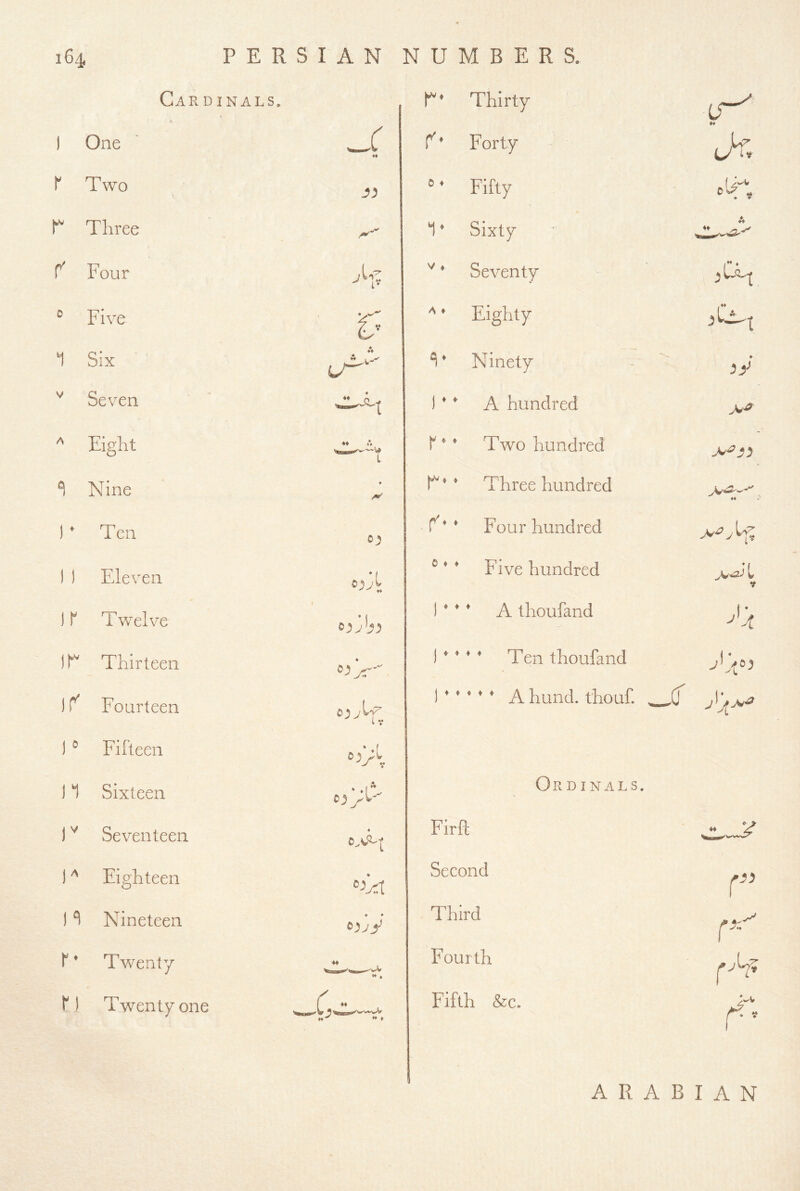 164 PERSIAN NUMBERS.
CARDINALS.
۱ One یک
۲ Two دو
۳ Three سه
۴ Four چهار
۵ Five پنج
۶ Six شش
۷ Seven هفت
۸ Eight هشت
۹ Nine نه
۱۰ Ten ده
۱۱ Eleven یازده
۱۲ Twelve دوازده
۱۳ Thirteen سیزده
۱۴ Fourteen چهارده
۱۵ Fifteen پانزده
۱۶ Sixteen شانزده
۱۷ Seventeen هفده
۱۸ Eighteen هژده
۱۹ Nineteen نوزده
۲۰ Twenty بیست
۲۱ Twenty one بیست و یک
۳۰ Thirty سی
۴۰ Forty چهل
۵۰ Fifty پنجاه
۶۰ Sixty شصت
۷۰ Seventy هفتاد
۸۰ Eighty هشتاد
۹۰ Ninety نود
۱۰۰ A hundred صد
۲۰۰ Two hundred دوصد
۳۰۰ Three hundred سیصد
۴۰۰ Four hundred چهارصد
۵۰۰ Five hundred پانصد
۱۰۰۰ A thouſand هزار
۱۰۰۰۰ Ten thouſand ده هزار
۱۰۰۰۰۰ A hund. thouſ. صد هزار یک
ORDINALS.
Firſt نخست
Second دوم
Third سیوم
Fourth چهارم
Fifth &c. پنجم
ARABIAN